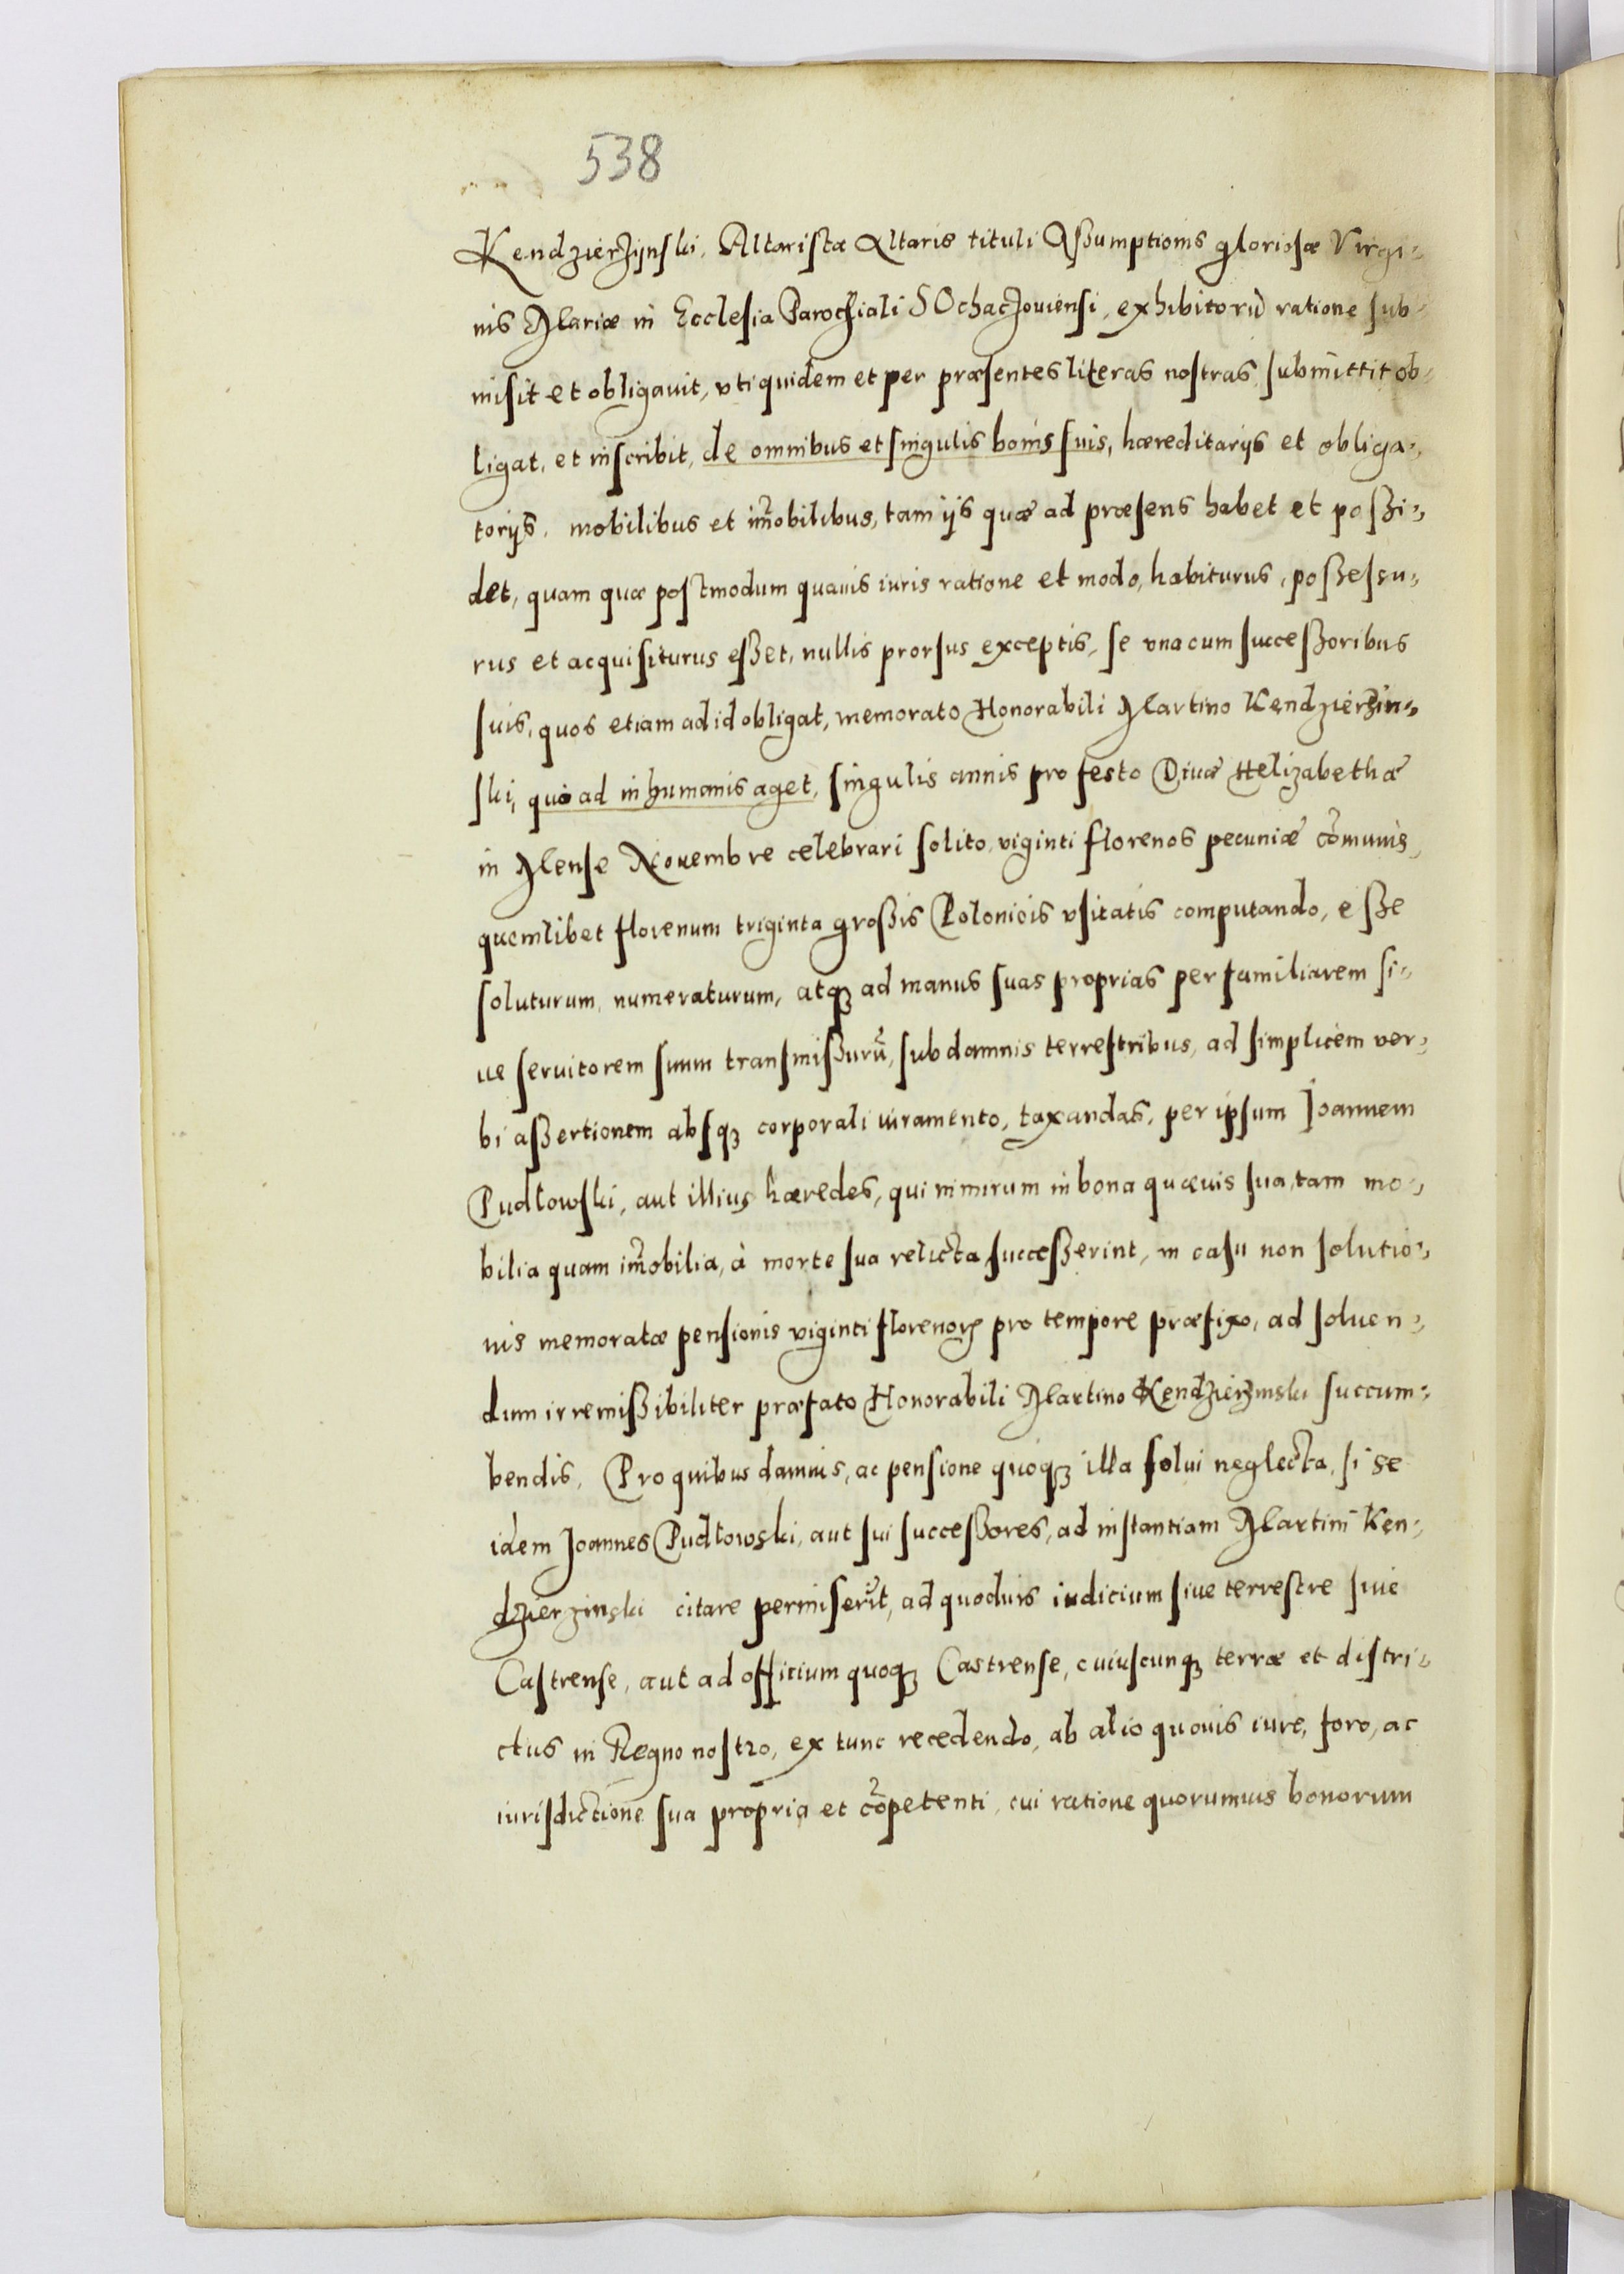 538
Kendzierzÿnſki, Altariſtæ Altaris tituli Aſsumptionis glorioſæ Virgi⸗
nis Mariæ in Eccleſia Parochiali SOchaczouienſi, exhibitorũ ratione ſub⸗
miſit et obligauit, vti quidem et per præſentes literas noſtras, ſubmittit ob⸗
ligat, et inſcribit, de omnibus et ſingulis bonis ſuis, hæreditarijs et obliga⸗
torijs, mobilibus et im̃obilibus, tam ijs quæ ad præſens habet et poſsi⸗
det, quam quæ poſtmodum quauis iuris ratione et modo, habiturus, poſseſsu⸗
rus et acquiſiturus eſset, nullis prorſus exceptis, ſe vna cum ſucceſsoribus
ſuis, quos etiam ad id obligat, memorato Honorabili Martino Kendzierzin⸗
ſki, quo ad in humanis aget, ſingulis annis pro feſto Diuæ Helizabethæ
in Menſe Nouembre celebrari ſolito, viginti florenos pecuniæ cõmunis,
quemlibet florenum triginta groſsis Polonicis vſitatis computando, eſse
ſoluturum, numeraturum, atqꝫ ad manus ſuas proprias per familiarem ſi⸗
ue ſeruitorem ſuum transmiſsurũ, ſub damnis terreſtribus, ad ſimplicem ver⸗
bi aſsertionem abſqꝫ corporali iuramento, taxandas, per ipſum Joannem
Pudłowſki, aut illius hæredes, qui nimirum in bona quæuis ſua, tam mo⸗
bilia quam im̃obilia, à morte ſua relicta ſucceſserint, in caſu non ſolutio⸗
nis memoratæ penſionis viginti florenorꝝ pro tempore præfixo, ad ſoluen⸗
dum irremiſsibiliter præfato Honorabili Martino Kendzierzinski ſuccum⸗
bendis, Pro quibus damnis, ac penſione quoqꝫ illa ſolui neglecta, ſi se
idem Joannes Pudłowſki, aut ſui ſucceſsores, ad inſtantiam Martini Ken⸗
dzierzinski citare permiſerĩt, ad quoduis iudicium ſiue terreſtre ſiue
Caſtrenſe, aut ad officium quoqꝫ Castrenſe, cuiuſcunqꝫ terræ et diſtri⸗
ctus in Regno noſtro, ex tunc recedendo, ab alio quouis iure, foro, ac
iuriſdictione ſua propria et cõpetenti, cui ratione quorumuis bonorum